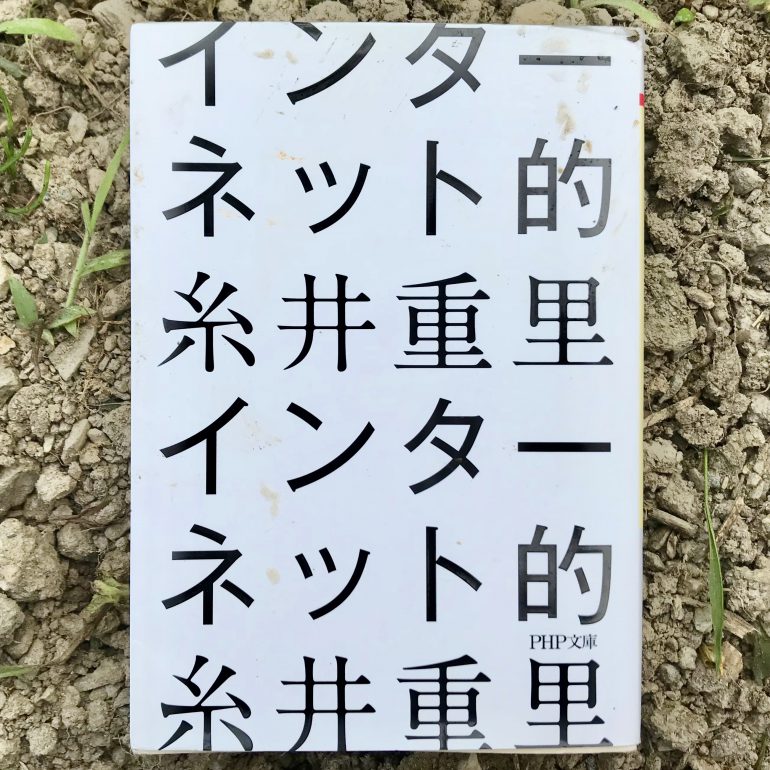 インター
ネット的
糸井重里
インター
ネット的
PHP文庫
糸井重里